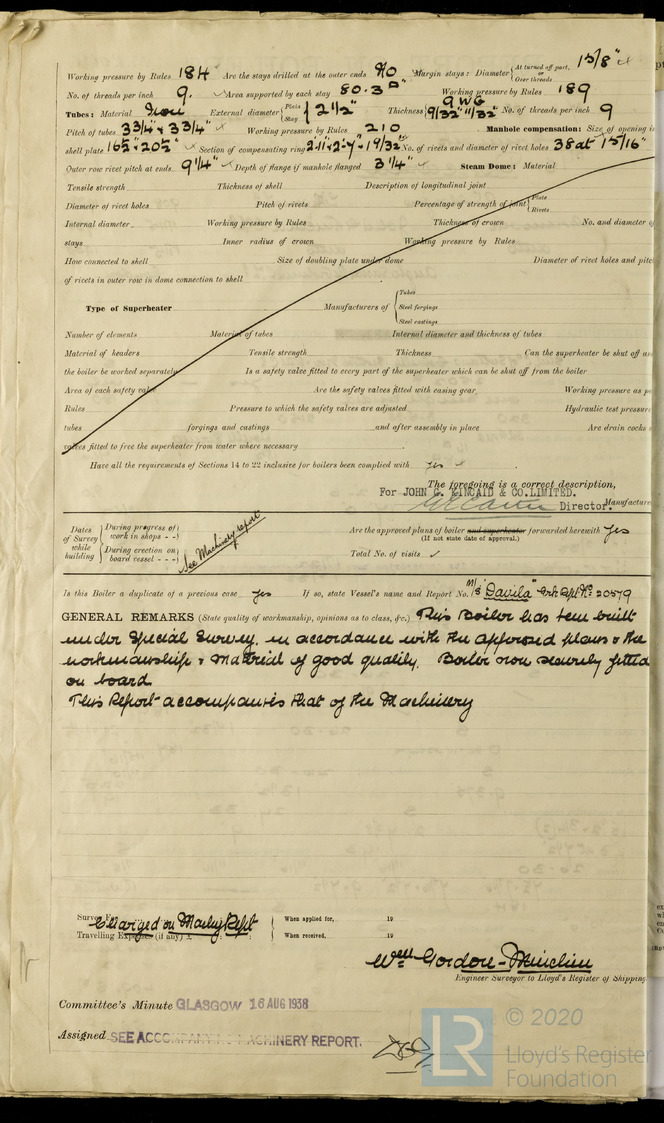 Working pressure by Rules 184 Are the stays drilled at the outer ends No Margin stays: Diameter { At turned off part, or Over threads 1 5/8"
No. of threads per inch 9. Area supported by each stay 80.3 □" Working pressure by Rules 189
Tubes: Material Iron External diameter { Plain Stay } 2 1/2" Thickness { 9 WG 9/32" 11/32" No. of threads per inch 9
Pitch of tubes 3 3/4 x 3 3/4" Working pressure by Rules 210 Manhole compensation: Size of opening in
shell plate 16 1/2 x 20 1/2" Section of compensating ring No. of rivets and diameter of rivet holes 38 at 15/16"
Outer row rivet pitch at ends 9 1/4" Depth of flange if manhole flanged 3 1/4" Steam Dome: Material
Tensile strength Thickness of shell Description of longitudinal joint
Diameter of rivet holes Pitch of rivets Percentage of strength of joint { Plate Rivets
Internal diameter Working pressure by Rules Thickness of crown No. and diameter of
stays Inner radius of crown Working pressure by Rules
How connected to shell Size of doubling plate under dome Diameter of rivet holes and pitch
of rivets in outer row in dome connection to shell
Type of Superheater Manufacturers of { Tubes Steel forgings Steel castings
Number of elements Material of tubes Internal diameter and thickness of tubes
Material of headers Tensile strength Thickness Can the superheater be shut off and
the boiler be worked separately Is a safety valve fitted to every part of the superheater which can be shut off from the boiler
Area of each safety valve Are the safety valves fitted with easing gear Working pressure as p
Rules Pressure to which the safety valves are adjusted Hydraulic test pressure
tubes forgings and castings and after assembly in place Are drain cocks
valves fitted to free the superheater from water where necessary
Have all the requirements of Sections 14 to 22 inclusive for boilers been complied with yes
The foregoing is a correct description,
For JOHN G. KINCAID & CO. LIMITED.
Director. Manufacture
Dates of Survey while building { During progress of work in shops - - } { During erection on board vessel - - - } See Machinery report
Are the approved plans of boiler and superheater forwarded herewith yes
(If not state date of approval.)
Total No. of visits
Is this Boiler a duplicate of a previous case yes If so, state Vessel's name and Report No. M/S "Davila" Grk Rpt No 20579
GENERAL REMARKS (State quality of workmanship, opinions as to class, &c.) This Boiler has been built
under Special Survey, in accordance with the approved plans & the
workmanship & material of good quality. Boiler now securely fitted
on board
This Report accompanies that of the Machinery
Survey Fee Charged on Machy Rept When applied for, 19
Travelling Expenses (if any) £ When received, 19
Wm Gordon-Minchin
Engineer Surveyor to Lloyd's Register of Shipping
Committee's Minute GLASGOW 16 AUG 1938
Assigned SEE ACCOMPANYING MACHINERY REPORT.
LR © 2020
Lloyd's Register
Foundation